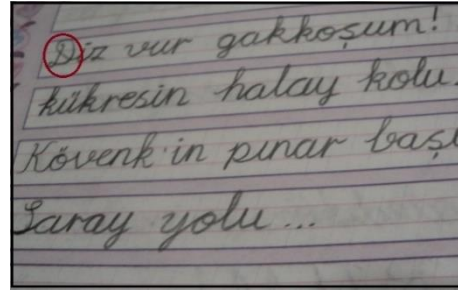 Diz vur gakkoşum!
kükresin halay kolu.
Kövenk'in pınar başı
Saray yolu...